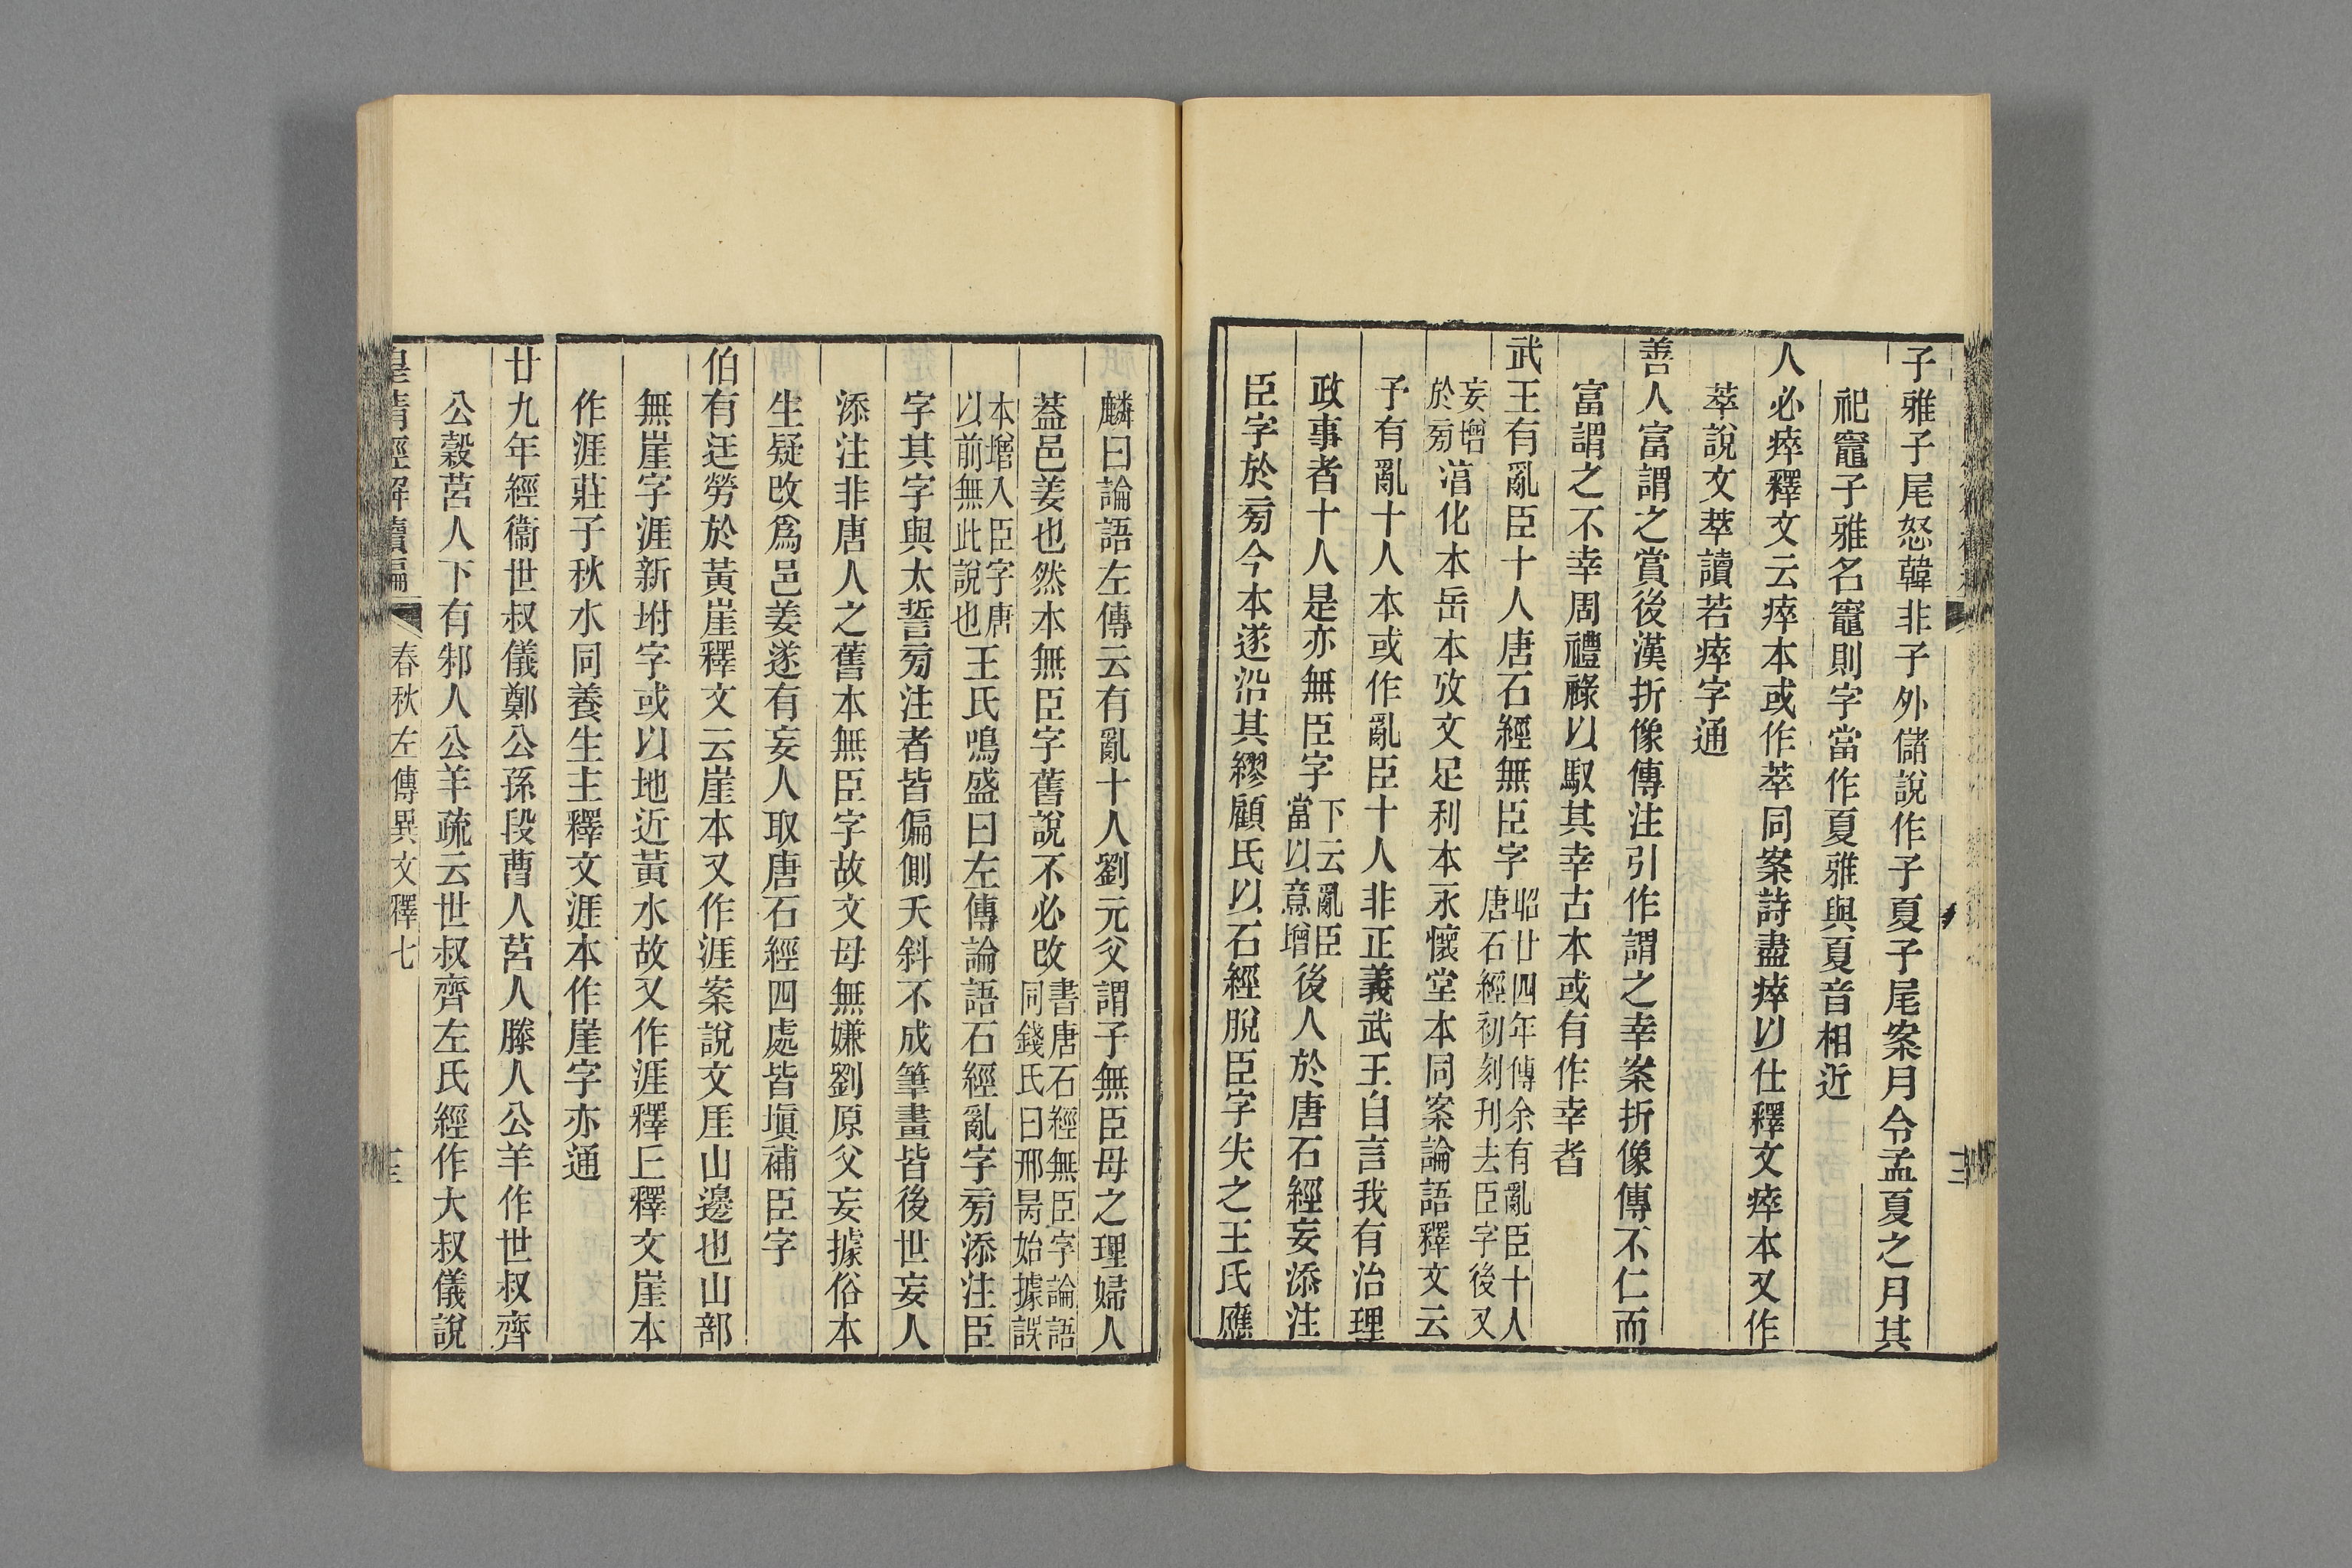 子雅子尾怒韓非子外儲說作子夏子尾案月令孟夏之月其
祀竈子雅名竈則字當作夏雅與夏音相近
人必瘁釋文云瘁本或作萃同案詩盡瘁以仕釋文瘁本又作
萃說文萃讀若瘁字通
善人富謂之賞後漢折像傳注引作謂之幸案折像傳不仁而
富謂之不幸周禮祿以馭其幸古本或有作幸者
武王有亂臣十人唐石經無臣字昭廿四年傳余有亂臣十人唐石經初刻刋去臣字後又
妄增於旁淯化本岳本攷文足利本永懷堂本同案論語釋文云
予有亂十人本或作亂臣十人非正義武王自言我有治理
政事者十人是亦無臣字下云亂臣當以意增後人於唐石經妄添注
臣字於旁今本遂沿其繆顧氏以石經脫臣字失之王氏應
麟曰論語左傳云有亂十人劉元父謂子無臣母之理婦人
葢邑姜也然本無臣字舊說不必改書唐石經無臣字論語同錢氏曰邢昺始據誤
本增入臣字唐以前無此說也王氏鳴盛曰左傳論語石經亂字旁添注臣
字其字與太誓旁注者皆偏側夭斜不成筆畫皆後世妄人
添注非唐人之舊本無臣字故文母無嫌劉原父妄據俗本
生疑改爲邑姜遂有妄人取唐石經四處皆塡補臣字
伯有迋勞於黃崖釋文云崖本又作涯案說文厓山邊也山部
無崖字涯新坿字或以地近黃水故又作涯釋丘釋文崖本
作涯莊子秋水同養生主釋文涯本作崖字亦通
廿九年經衞世叔儀鄭公孫段曹人莒人滕人公羊作世叔齊
公穀莒人下有邾人公羊疏云世叔齊左氏經作大叔儀說
皇清經解續編 春秋左傳異文釋七